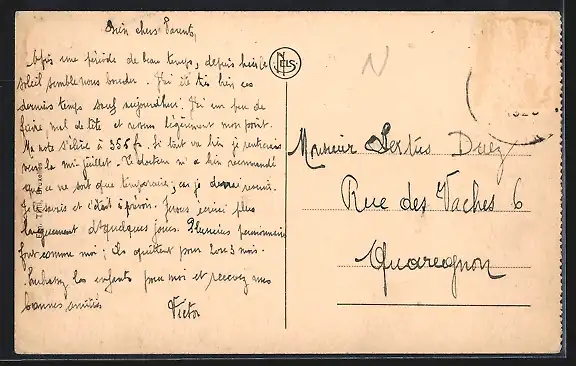 Bien chers Parents,
Après une période de beau temps, depuis hier le
soleil semble nous bouder. J'ai été très bien ces
derniers temps sauf aujourdhui. J'ai un peu de
mal de tête et légèrement mon point.
Ma note s'élève à 356 fr. Si tout va bien je rentrerais
vers la mi-juillet. Le docteur m'a bien recommandé
que ce ne soit que temporaire, car je devrai revenir.
Je le savais et c'était à prévoir. Je vous écrirai plus
longuement d'ici quelques jours. Plusieurs pensionnaires
font comme moi; ils quittent pour 2 ou 3 mois.
Embrassez les enfants pour moi et recevez mes
bonnes amitiés
Victor
NELS
N
Monsieur Sextus Duez
Rue des Vaches 6
Quaregnon